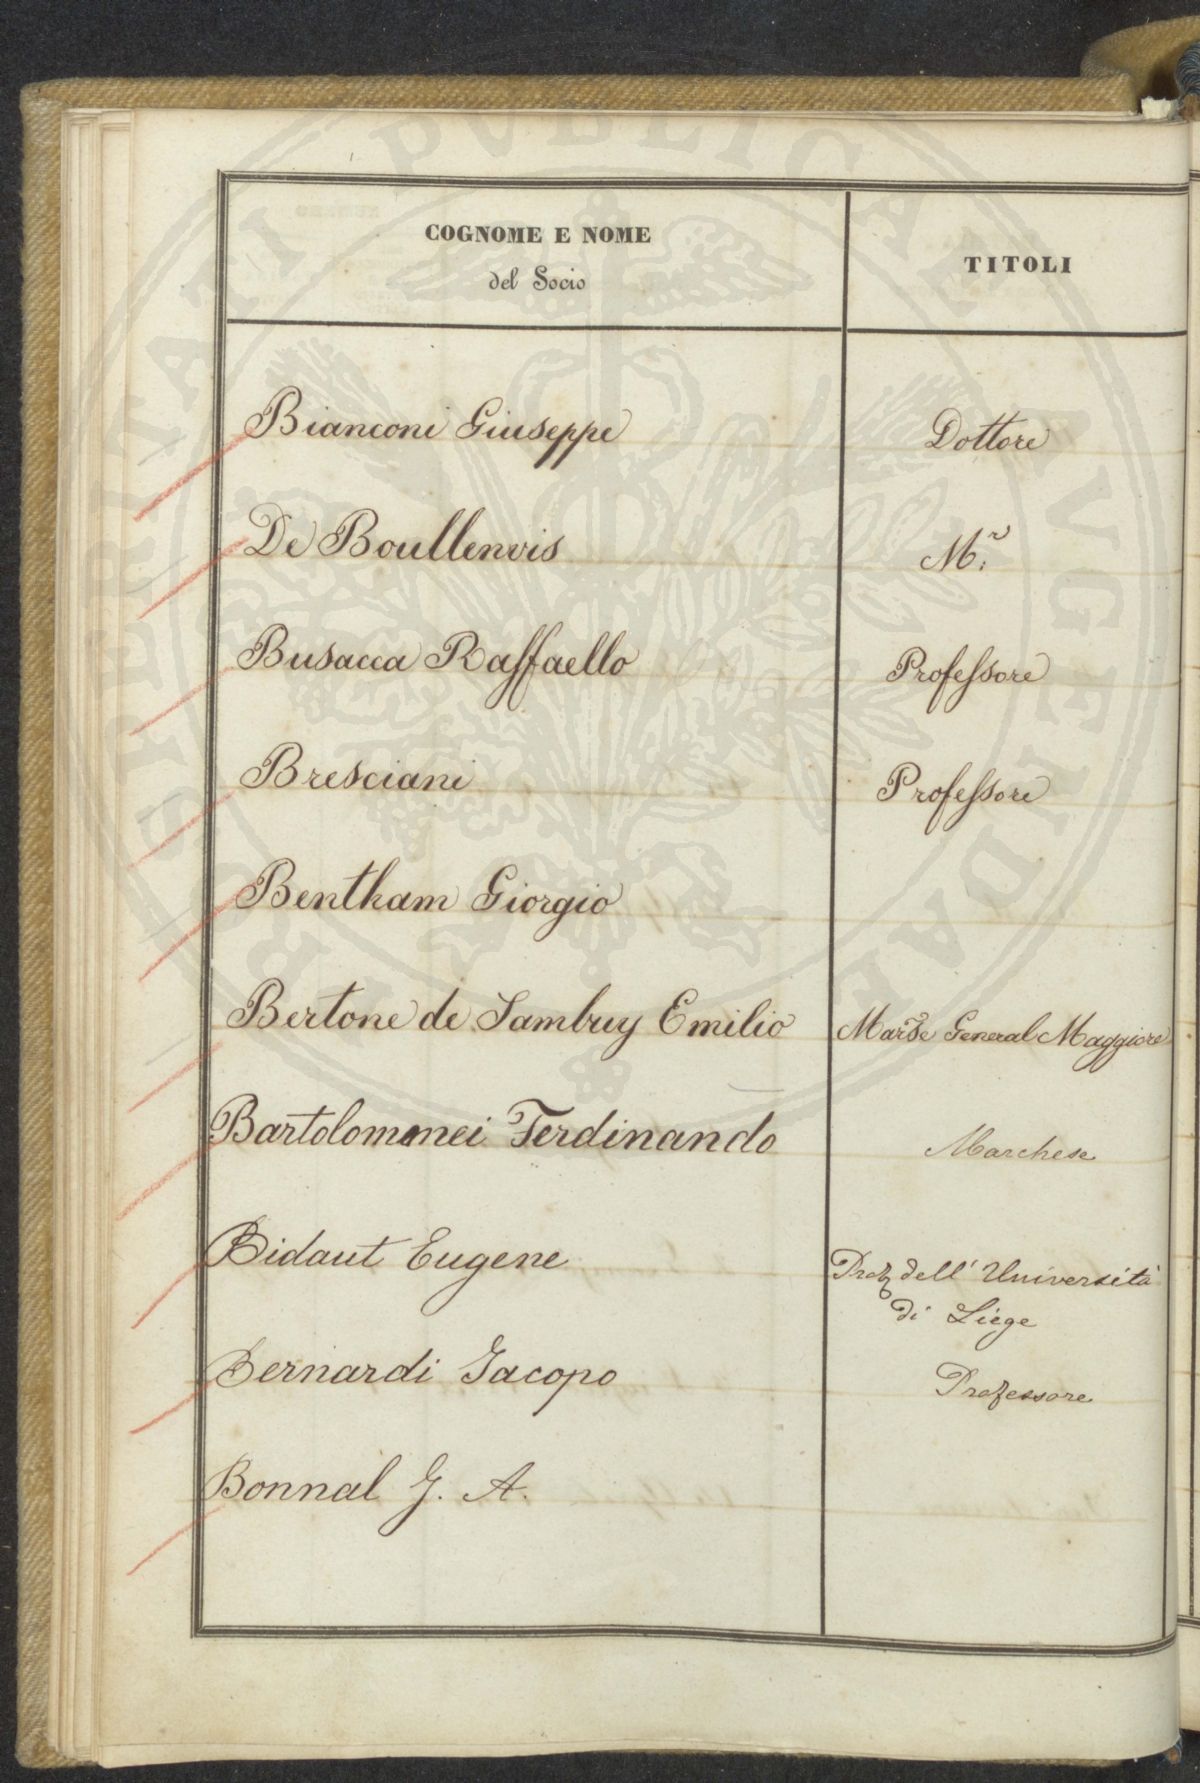 COGNOME E NOME
del Socio
TITOLI
Bianconi Giuseppe
Dottore
De Boullenois
M.r
Busacca Raffaello
Professore
Bresciani
Professore
Bentham Giorgio
Bertone de Sambuy Emilio
General Maggiore
Bartolommei Ferdinando
Marchese
Bidaut Eugene
Prof dell' Università
di Liege
Bernardi Jacopo
Professore
Bonnal G. A.